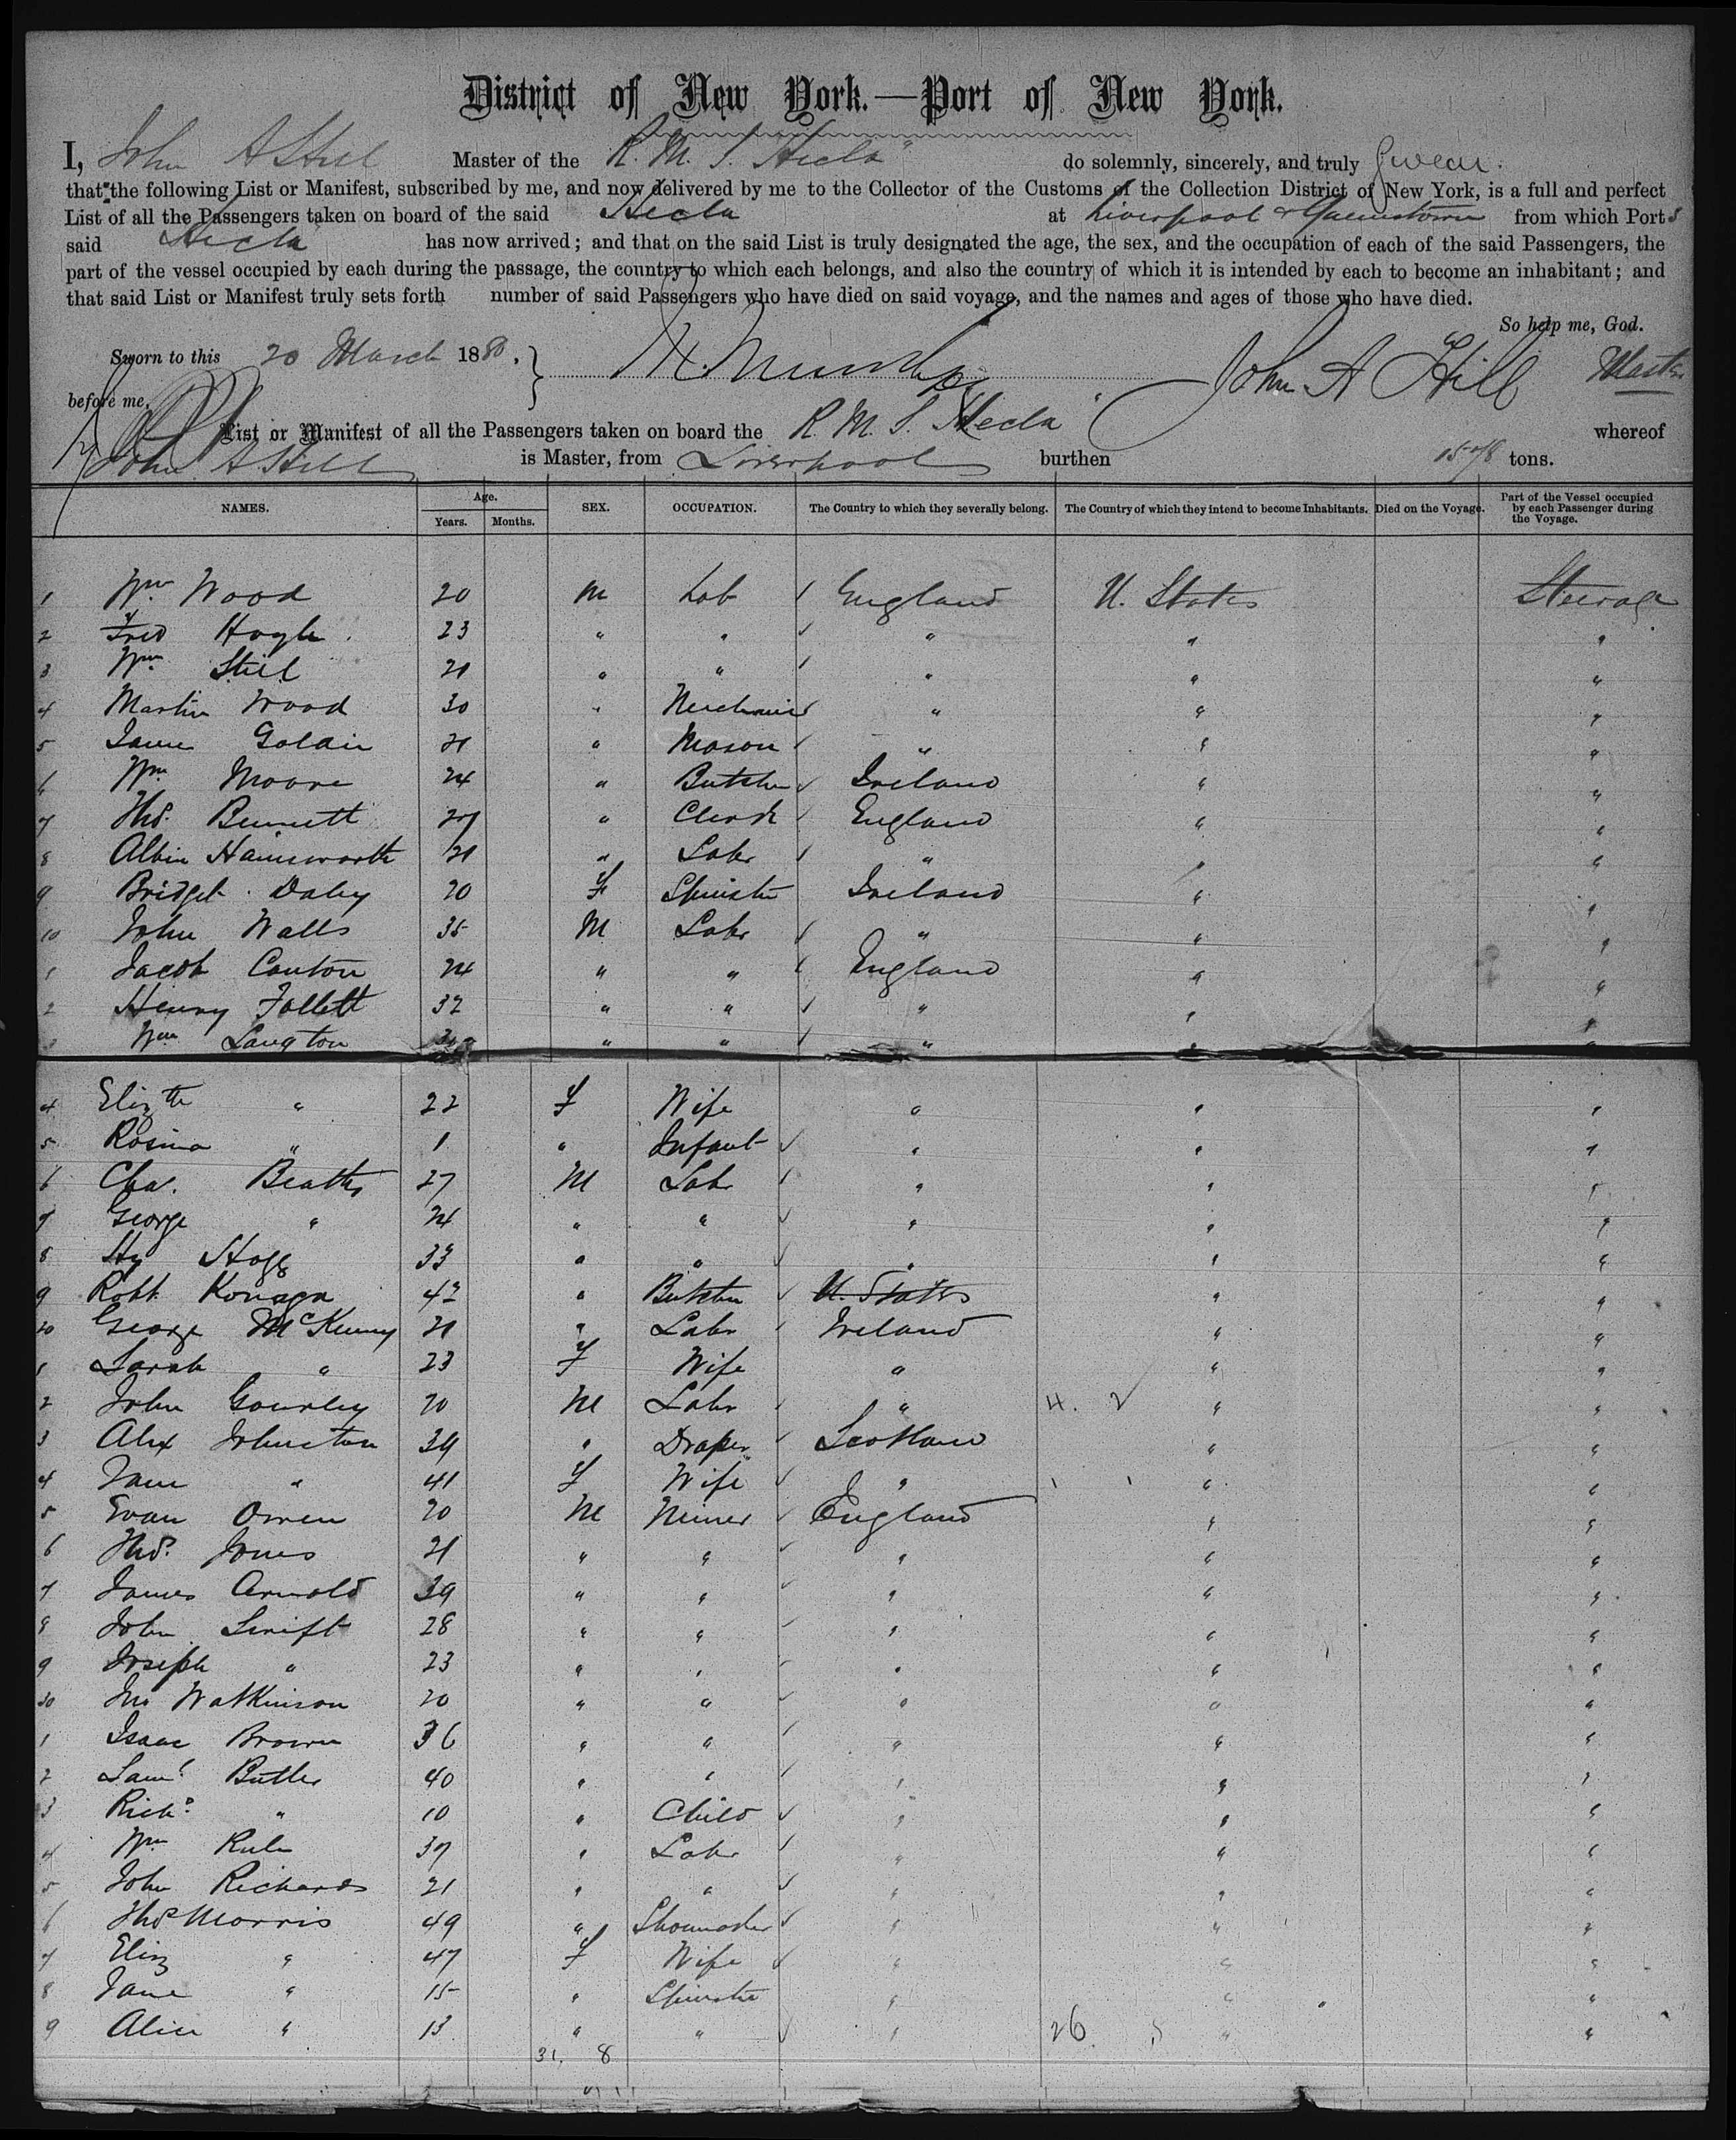 District of New York.—Port of New York.
I, John A Hill Master of the R. M. S. Hecla" do solemnly, sincerely, and truly Swear.
that the following List or Manifest, subscribed by me, and now delivered by me to the Collector of the Customs of the Collection District of New York, is a full and perfect
List of all the Passengers taken on board of the said Hecla at Liverpool & Queenstown from which Ports
said Hecla has now arrived; and that on the said List is truly designated the age, the sex, and the occupation of each of the said Passengers, the
part of the vessel occupied by each during the passage, the country to which each belongs, and also the country of which it is intended by each to become an inhabitant; and
that said List or Manifest truly sets forth number of said Passengers who have died on said voyage, and the names and ages of those who have died.
So help me, God.
Sworn to this 20 March 1880. John A Hill Master
before me,
List or Manifest of all the Passengers taken on board the R. M. S. Hecla whereof
John A Hill is Master, from Liverpool burthen tons.
NAMES. Age. Years. Months. SEX. OCCUPATION. The Country to which they severally belong. The Country of which they intend to become Inhabitants. Died on the Voyage. Part of the Vessel occupied by each Passenger during the Voyage.
1 Wm Wood 20 M Lab England U. States Steerage
2 Fred 23 " " " " "
3 Wm 21 " " " " "
4 Martin Wood 30 " " " "
5 21 " Mason " " "
6 Wm Moore 24 " Butcher Ireland " "
7 Thos. Bennett 27 " Clerk England " "
8 Albin Hainsworth 21 " Labr " " "
9 Bridget Daley 20 F Spinster Ireland " "
10 John Walls 35 M Labr " " "
1 Jacob Canton 24 " " England " "
2 Henry Follett 32 " " " " "
Wm Langton " " " " "
4 Elizth " 22 F Wife " " "
5 Rosina " 1 " Infant " " "
6 Cha. Beatts 27 M Labr " " "
7 George " 24 " " " " "
8 Hy Hogg 33 " " " " "
9 Robt. 42 " Butcher U. States " "
20 George McKenny 21 " Labr Ireland " "
1 Sarah " 23 F Wife " " "
2 John Gourley 20 M Labr " 4. 2 " "
3 Alex Johnston 39 " Draper Scotland " "
4 Jane " 41 F Wife " " "
5 Evan Owen 20 M Miner England " "
6 Thos. Jones 21 " " " " "
7 James Arnold 39 " " " " "
8 John Swift 28 " " " " "
9 Joseph " 23 " " " " "
30 Jno Watkinson 20 " " " " "
1 Isaac Brown 36 " " " " "
2 Saml Butler 40 " " " " "
3 Richd " 10 " Child " " "
4 Wm Rule 37 " Labr " " "
5 John Richards 21 " " " " "
6 Thos Morris 49 " Shoemaker " " "
7 Eliz " 47 F Wife " " "
8 Jane " 15 " Spinster " " "
9 Alice " 13 " " " 26. 5 " "
31. 8